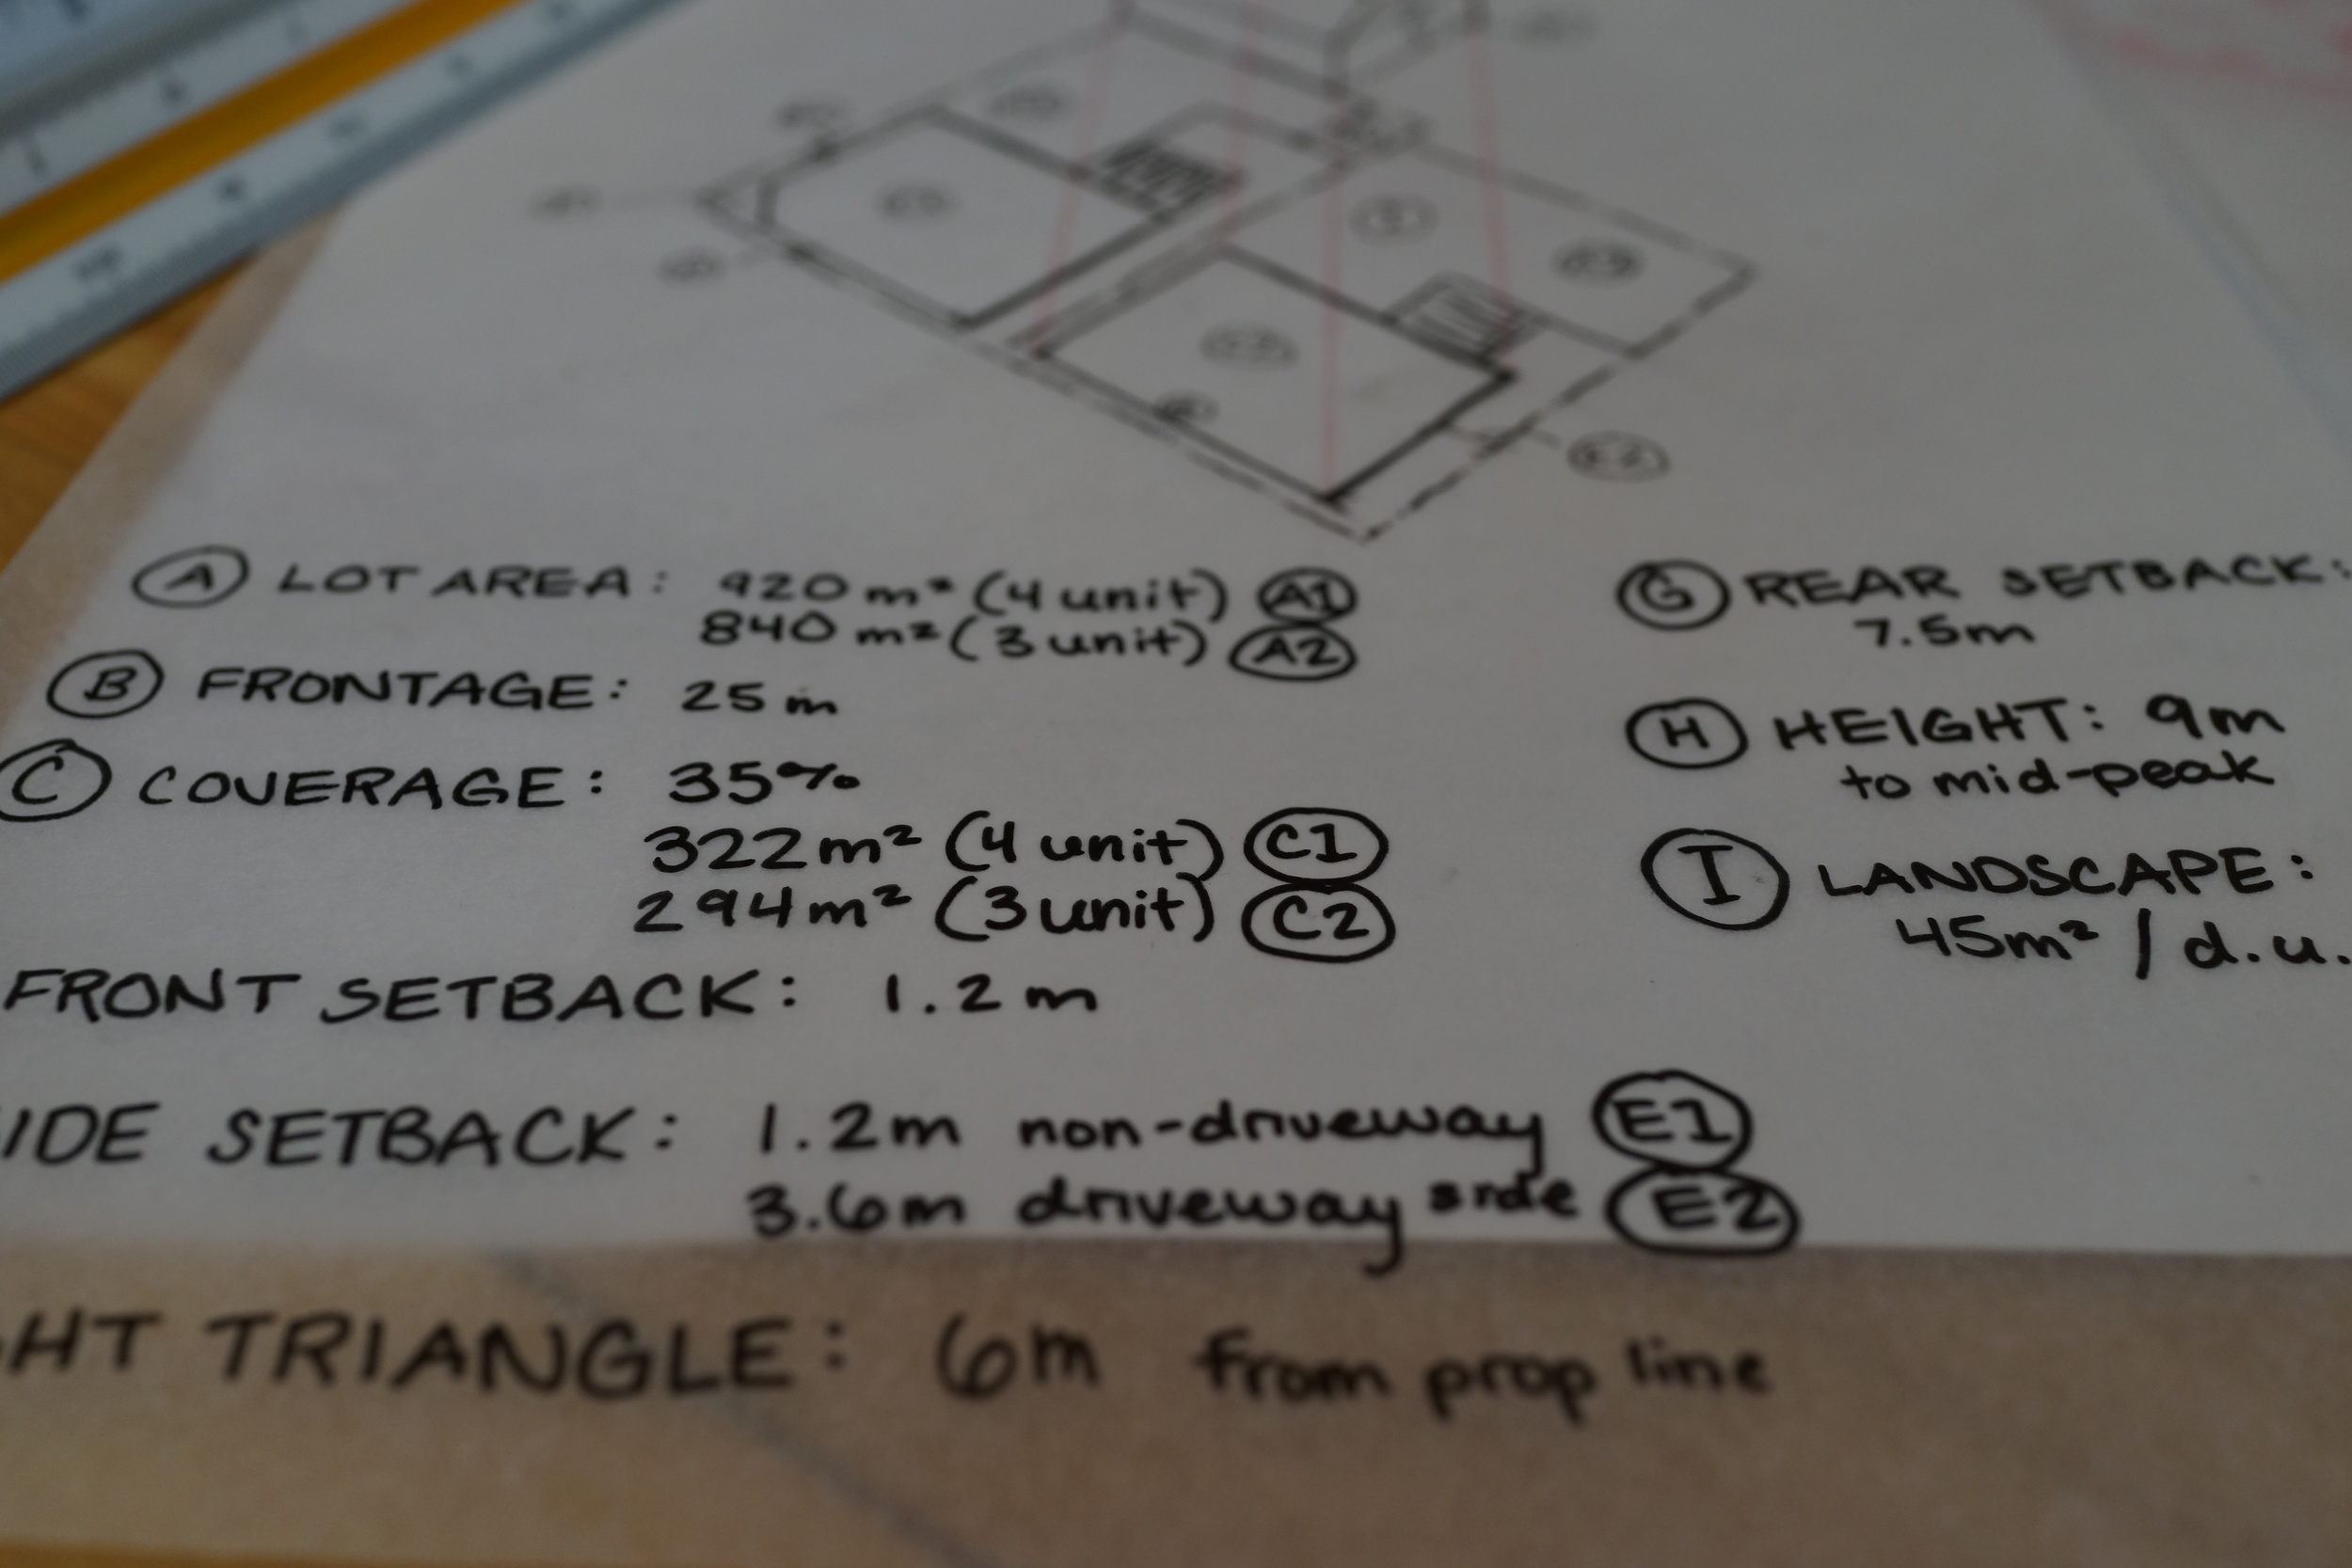 A LOT AREA: 920 m² (4 unit) A1
840 m² (3 unit) A2
B FRONTAGE: 25 m
C COVERAGE: 35%
322 m² (4 unit) C1
294 m² (3 unit) C2
FRONT SETBACK: 1.2 m
IDE SETBACK: 1.2m non-driveway E1
3.6m driveway side E2
GHT TRIANGLE: 6m from prop line
G REAR SETBACK:
7.5m
H HEIGHT: 9m
to mid-peak
I LANDSCAPE:
45m² / d.u.